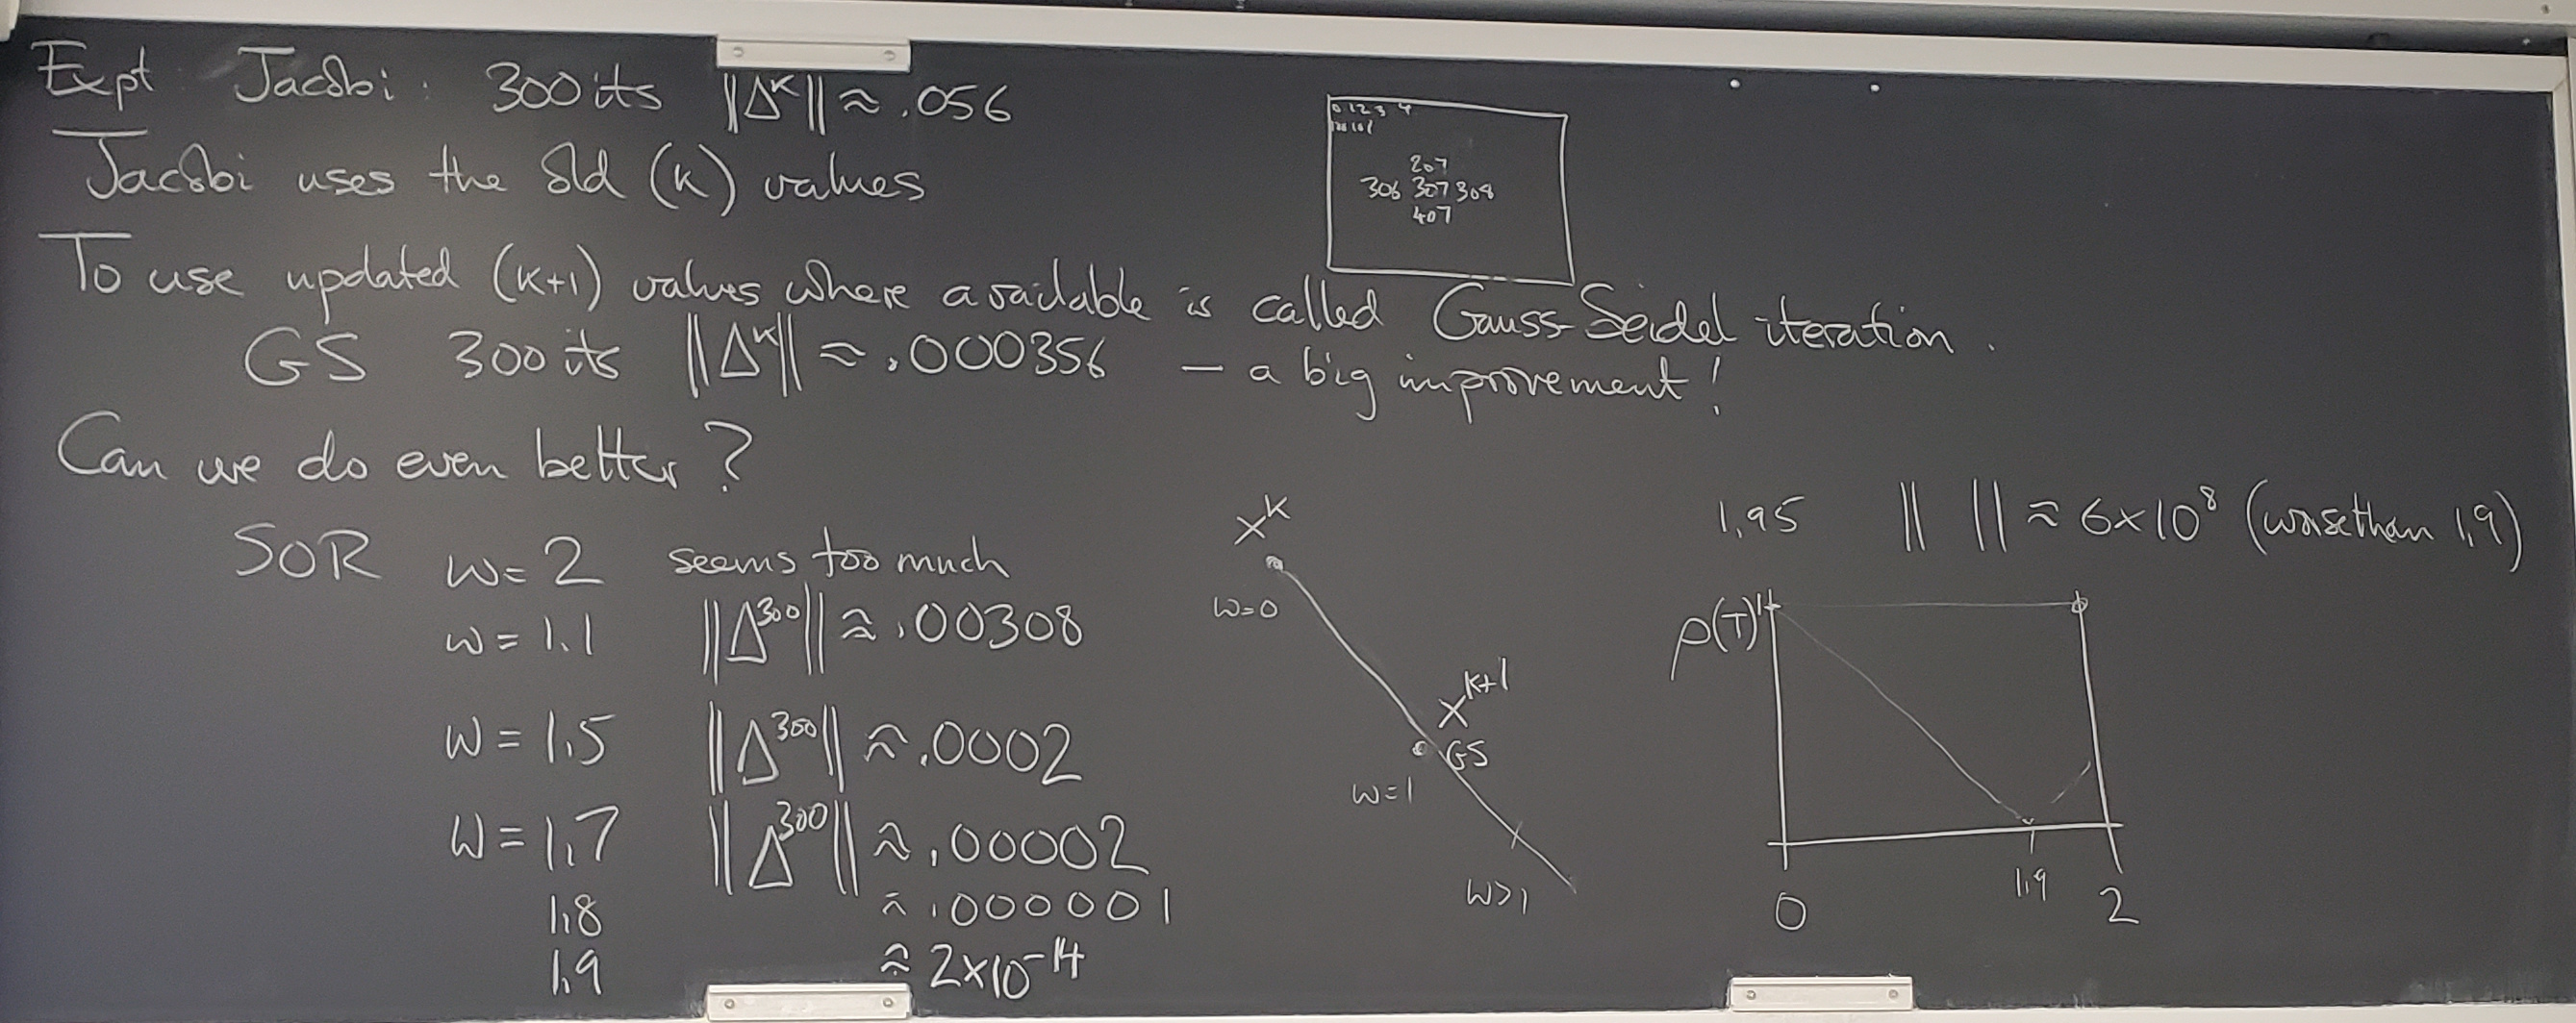 Expt Jacobi: 300 its ||Δᴷ|| ≈ .056
Jacobi uses the old (K) values
To use updated (K+1) values where available is called Gauss-Seidel iteration.
GS 300 its ||Δᴷ|| ≈ .000356 — a big improvement!
Can we do even better?
SOR w = 2 seems too much
w = 1.1 ||Δ³⁰⁰|| ≈ .00308
w = 1.5 ||Δ³⁰⁰|| ≈ .0002
w = 1.7 ||Δ³⁰⁰|| ≈ .00002
1.8 ≈ .000001
1.9 ≈ 2×10⁻¹⁴
0 1 2 3 4
100 101
207
306 307 308
407
Xᴷ
w=0
Xᴷ⁺¹
GS
w=1
w>1
1.95 || || ≈ 6×10⁸ (worse than 1.9)
ρ(T) 1
1.9
0 2